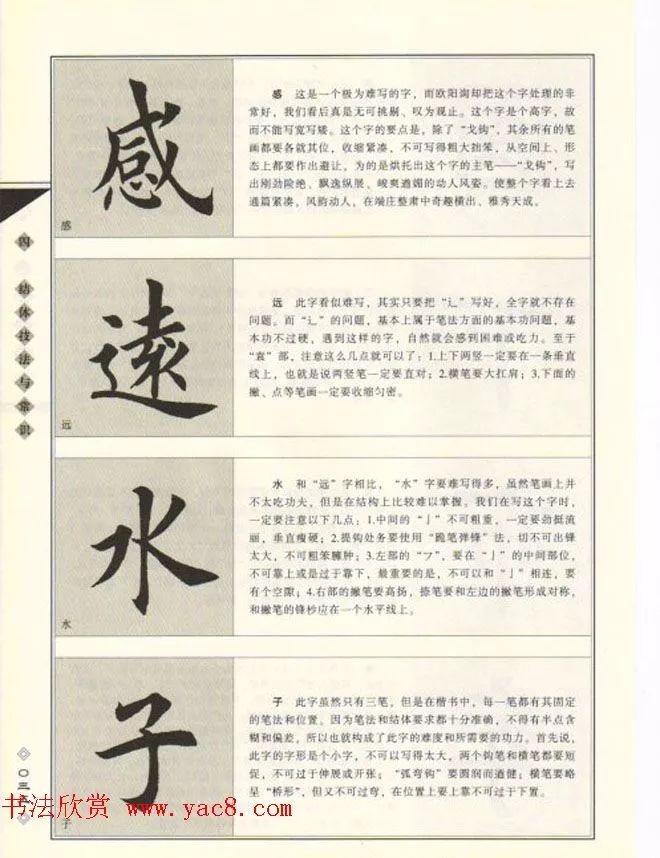 感
感 这是一个极为难写的字，而欧阳询却把这个字处理的非
常好，我们看后真是无可挑剔、叹为观止。这个字是个高字，故
而不能写宽写矮。这个字的要点是，除了“戈钩”，其余所有的笔
画都要各就其位，收缩紧凑，不可写得粗大拙笨，从空间上、形
态上都要作出避让，为的是烘托出这个字的主笔——“戈钩”，写
出刚劲险绝、飘逸纵展、峻爽遒媚的动人风姿。使整个字看上去
通篇紧凑，风韵动人，在端庄整肃中奇趣横出、雅秀天成。
感
四 结体技法与常识
遠
远 此字看似难写，其实只要把“辶”写好，全字就不存在
问题。而“辶”的问题，基本上属于笔法方面的基本功问题，基
本功不过硬，遇到这样的字，自然就会感到困难或吃力。至于
“袁”部，注意这么几点就可以了：1.上下两竖一定要在一条垂直
线上，也就是说两竖笔一定要直对；2.横笔要大扛肩；3.下面的
撇、点等笔画一定要收缩匀密。
远
水
水 和“远”字相比，“水”字要难写得多，虽然笔画上并
不太吃功夫，但是在结构上比较难以掌握。我们在写这个字时，
一定要注意以下几点：1.中间的“亅”不可粗重，一定要劲挺流
丽，垂直瘦硬；2.提钩处务要使用“跪笔弹锋”法，切不可出锋
太大，不可粗笨臃肿；3.左部的“㇇”，要在“亅”的中间部位，
不可靠上或是过于靠下，最重要的是，不可以和“亅”相连，要
有个空隙；4.右部的撇笔要高扬，捺笔要和左边的撇笔形成对称，
和撇笔的锋杪应在一个水平线上。
水
子
子 此字虽然只有三笔，但是在楷书中，每一笔都有其固定
的笔法和位置。因为笔法和结体要求都十分准确，不得有半点含
糊和偏差，所以也就构成了此字的难度和所需要的功力。首先说，
此字的字形是个小字，不可以写得太大，两个钩笔和横笔都要短
促，不可过于伸展或开张；“弧弯钩”要圆润而遒健；横笔要略
呈“桥形”，但又不可过弯，在位置上要上靠不可过于下置。
子
〇三五
书法欣赏 www.yac8.com